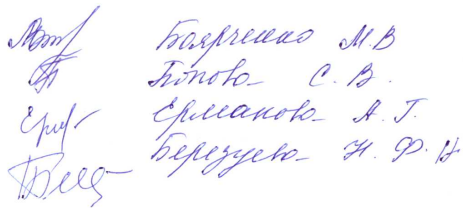 Боярченко М.В
Попова С. В.
Ермакова А. Г.
Березуева Н. Ф.